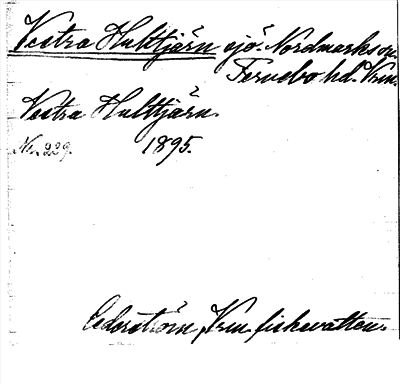 Vestra Hulttjärn sjö. Nordmarks sn.
Fernebo hd. Vrm.
Vestra Hulttjärn.
No. 229. 1895.
Cederström, Vrm. fiskevatten.